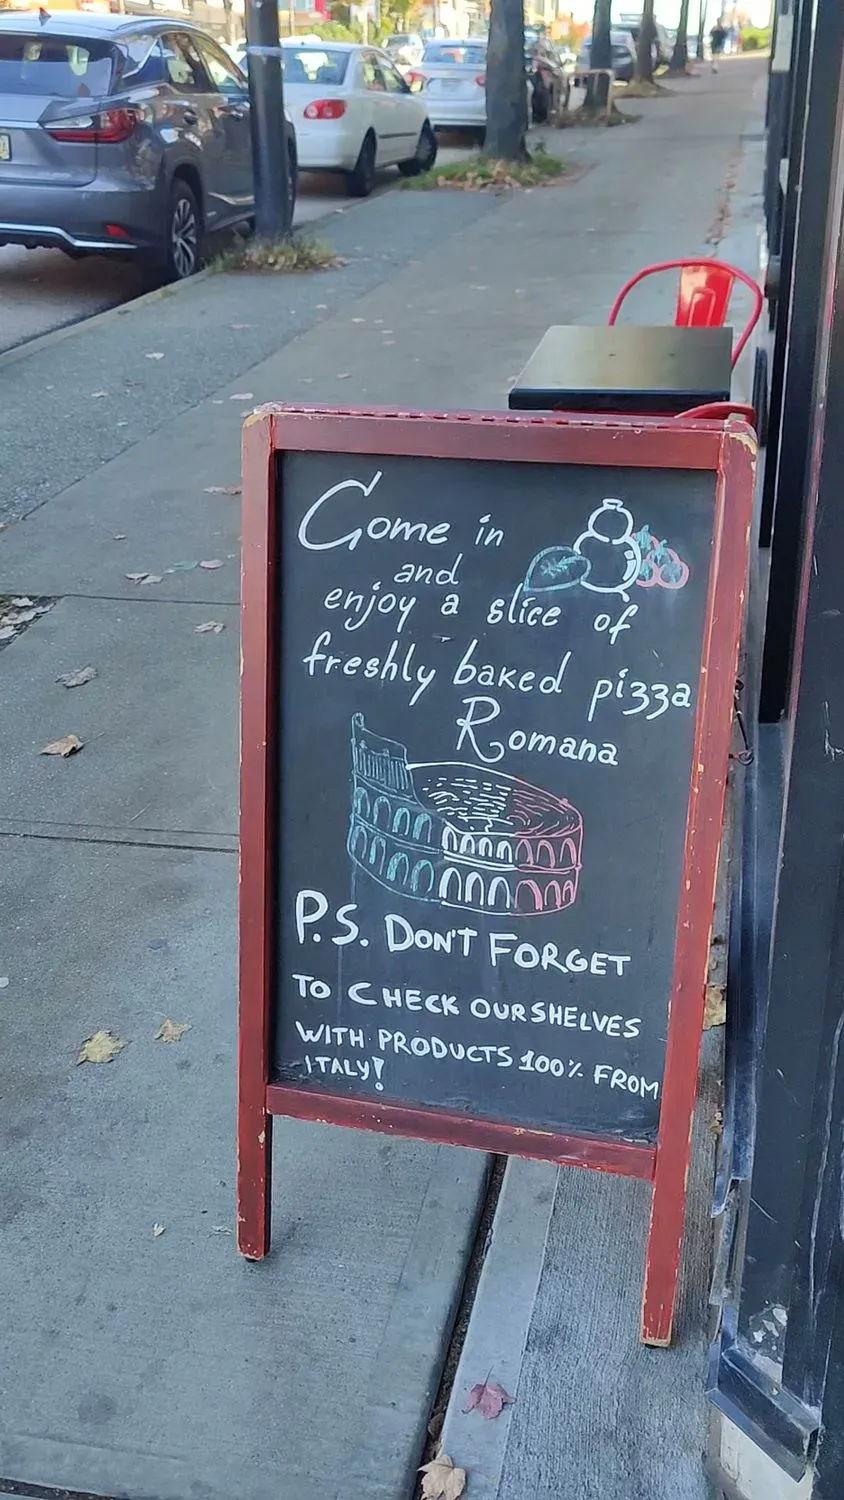 Come in
and
enjoy a slice of
freshly baked pizza
Romana
P.S. DON'T FORGET
TO CHECK OUR SHELVES
WITH PRODUCTS 100% FROM
ITALY!